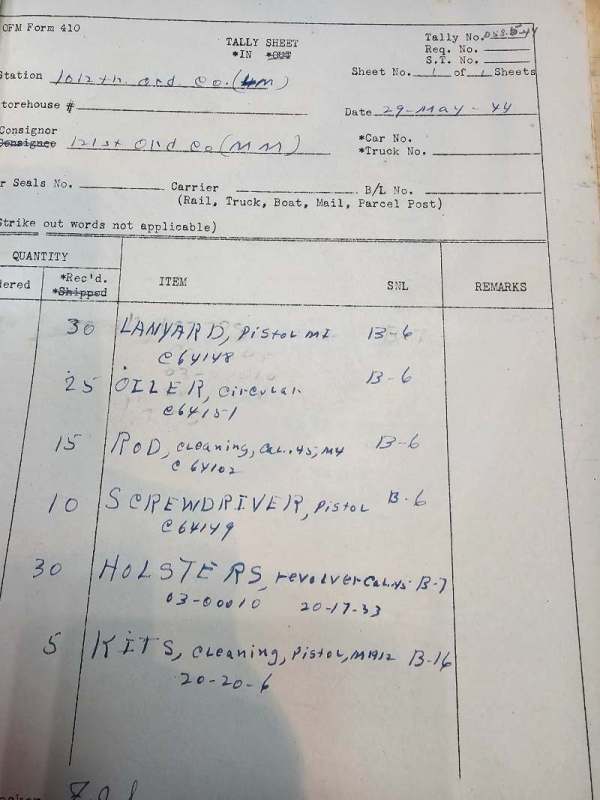 OFM Form 410
TALLY SHEET
*IN *OUT
Tally No. 058-5-44
Req. No.
S.T. No.
Station 1012th ord co. (MM)
Sheet No. 1 of 1 Sheets
torehouse #
Date 29-May-44
Consignor
Consignee 121st Ord Co (MM)
*Car No.
*Truck No.
r Seals No. Carrier B/L No.
(Rail, Truck, Boat, Mail, Parcel Post)
Strike out words not applicable)
QUANTITY
dered *Rec'd. ITEM SNL REMARKS
*Shipped
30 LANYARD, Pistol M1 B-6
C64148
25 OILER, Circular B-6
C64151
15 ROD, cleaning, Cal..45, M4 B-6
C 64102
10 SCREWDRIVER, Pistol B-6
C64149
30 HOLSTERS, revolver Cal.45 B-7
03-00010 20-17-33
5 KITS, cleaning, Pistol, M1912 B-16
20-20-6